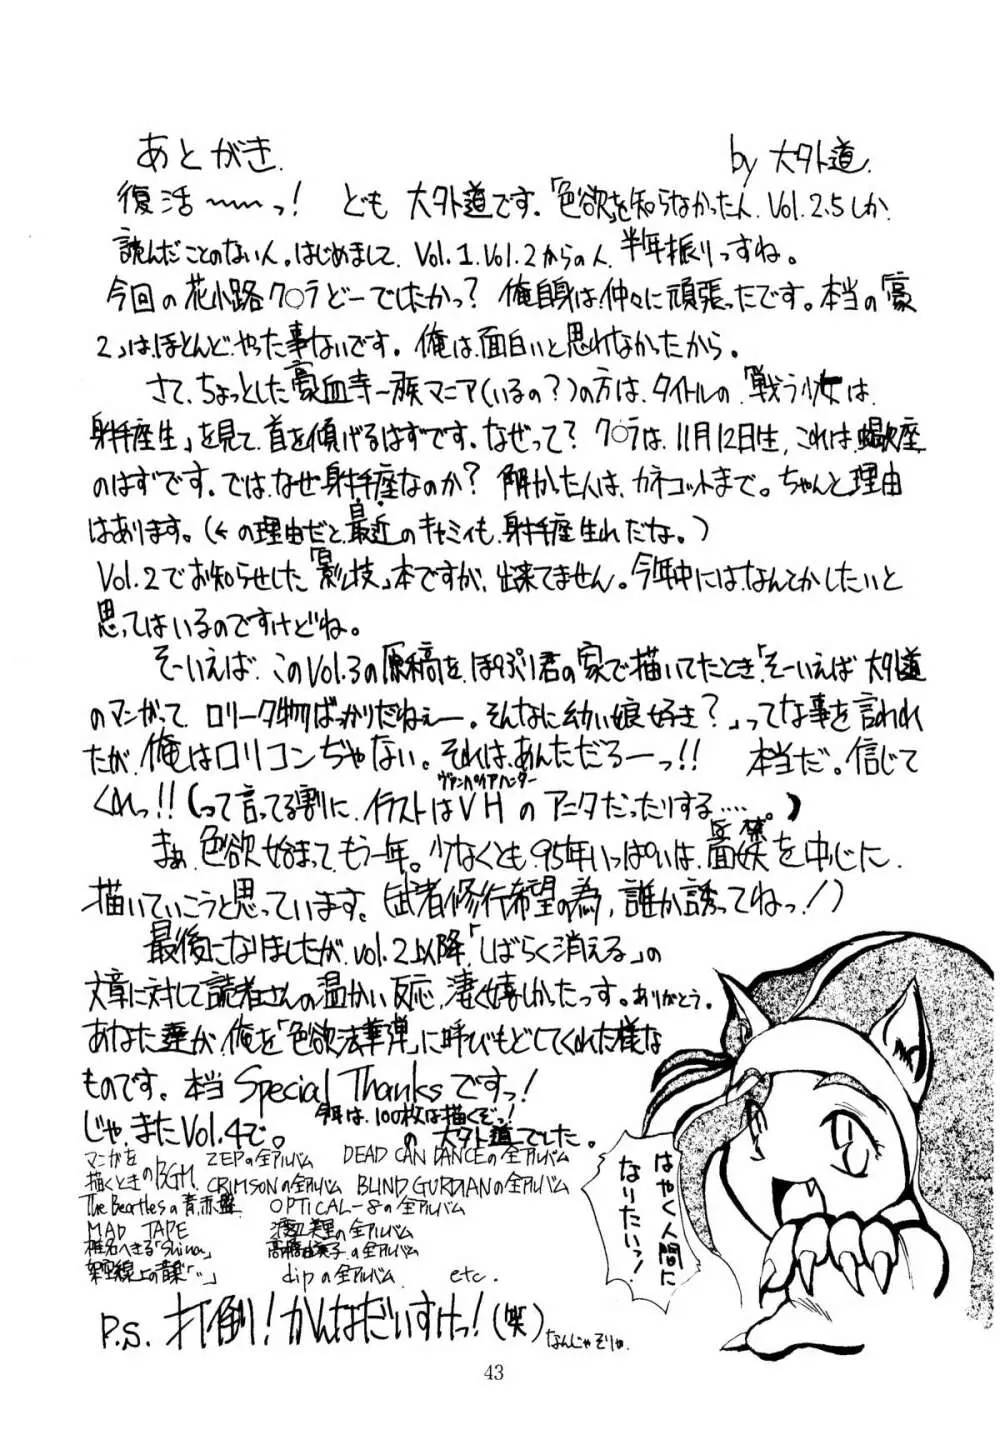 あとがき. by 大外道.
復活〜〜〜っ! ども 大外道です。「色欲」を知らなかった人、Vol.2.5しか
読んだことのない人。はじめまして、Vol.1.Vol.2からの人、半年振りっすね。
今回の花小路ク○ラどーでしたかっ? 俺自身は、仲々に頑張ったです。本当の「豪
2」は、ほとんど、やった事ないです。俺は、面白いと思れなかったから。
さて、ちょっとした豪血寺一族マニア(いるの?)の方は、タイトルの「戦う少女は、
射手座生」を見て、首を傾げるはずです。なぜって? ク○ラは、11月12日生、これは、蠍座
のはずです。では、なぜ、射手座なのか? 解かった人は、カネコットまで。ちゃんと理由
はあります。(←の理由だと、最近のキャミィも、射手座生れだな。)
Vol.2でお知らせした「影技」本ですが、出来てません。今年中には、なんとかしたいと
思ってはいるのですけどね。
そーいえば、このVol.3の原稿を、ほぷり君の家で描いてたとき、「そーいえば 大外道
のマンガって、ロリータ物ばっかりだねぇー。そんなに幼い娘好き?」ってな事を言われ
たが、俺はロリコンぢゃない。それは、あんただろーっ!! 本当だ。信じて
くれっ!!(って言ってる割に、イラストはVHのアニタだったりする.....。)
ヴァンパイアハンター
まぁ、色欲始まってもう一年。少なくとも、95年いっぱいは、面妖を中心に、
描いていこうと思っています。(武者修行希望の為、誰か誘ってねっ!)
最後になりましたが、vol.2以降、「しばらく消える」の
文章に対して読者さんの温かい反応、凄く嬉しかったっす。ありがとう。
あなた達が、俺を「色欲法華弾」に呼びもどしてくれた様な
ものです。本当 Special Thanksですっ!
じゃ、またVol.4で。今年は、100枚は描くぞっ!の 大外道でした。
マンガを描くときのBGM ZEPの全アルバム DEAD CAN DANCEの全アルバム
CRIMSONの全アルバム BLIND GURDIANの全アルバム
The Beartlesの青,赤盤 OPTICAL-8の全アルバム
MAD TAPE 渡辺美里の全アルバム
椎名へきる「Shiina」 高橋由美子の全アルバム
dipの全アルバム etc.
P.S. 打倒! かんなだいすけっ!(笑) なんじゃそりゃ.
はやく人間に
なりたいっ!
43